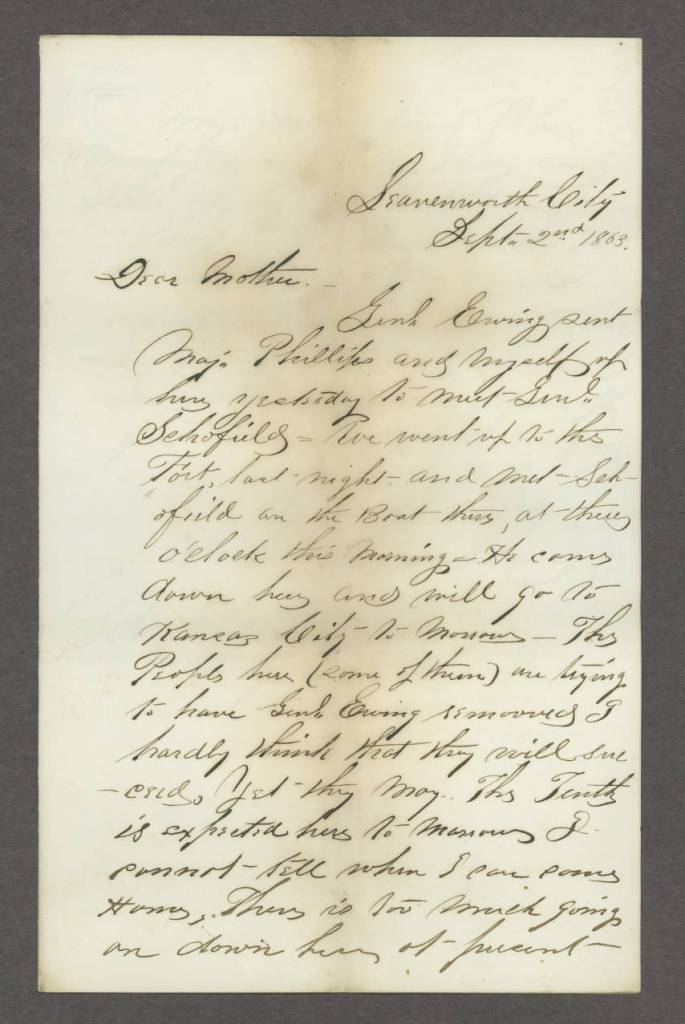 Leavenworth City
Sept. 2nd 1863.
Dear Mother. –
Genl. Ewing sent
Maj. Phillips and myself up
here yesterday to meet Genl.
Schofield – We went up to the
Fort, last night – and met – Sch-
ofield on the Boat there, at three
o'clock this morning – He comes
down here and will go to
Kansas City – to morrow – The
People here (some of them) are trying
to have Genl. Ewing removed I
hardly think that they will suc
– ceed. Yet they may. The Tenth
is expected here to morrow I
cannot – tell when I can come
Home, There is too much going
on down here at – present –